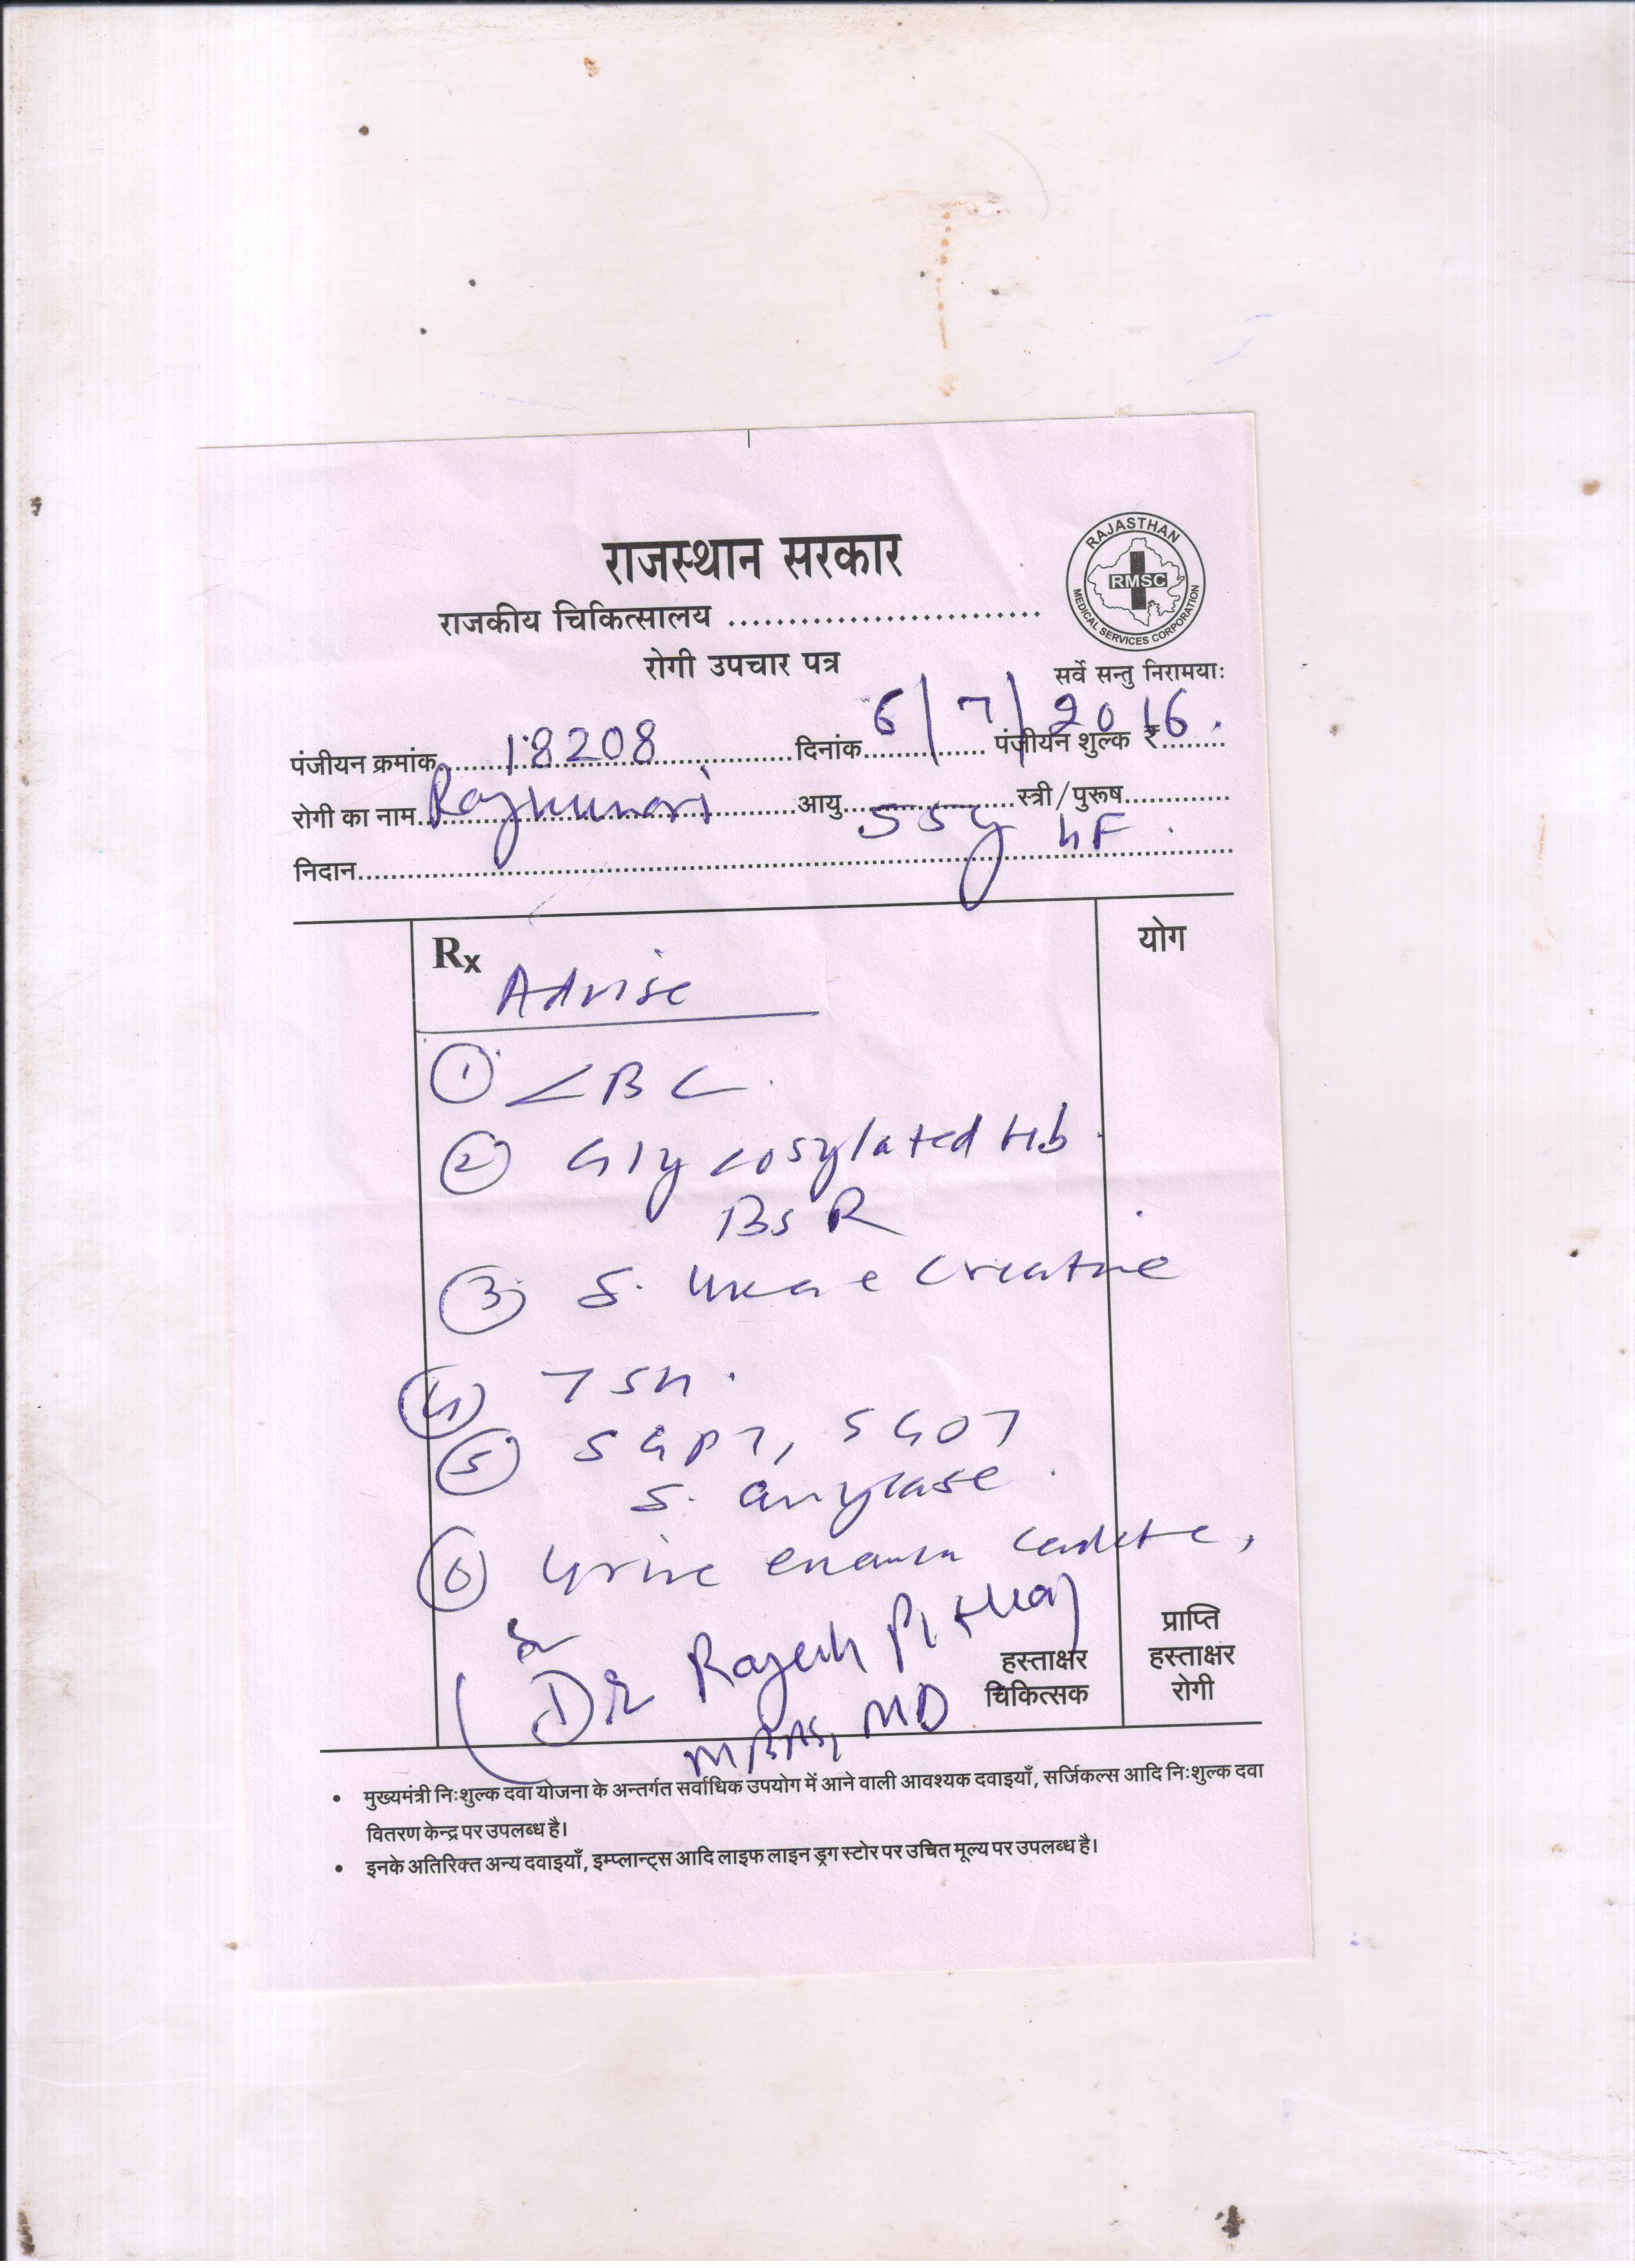 राजस्थान सरकार
राजकीय चिकित्सालय ..........................
रोगी उपचार पत्र
RAJASTHAN
RMSC
MEDICAL SERVICES CORPORATION
सर्वे सन्तु निरामयाः
पंजीयन क्रमांक 18208 दिनांक 6/7/2016. पंजीयन शुल्क ₹
रोगी का नाम Rajkumari आयु 55y स्त्री/पुरूष hF.
निदान
Rx योग
Advise
① CBC.
② Glycosylated Hb.
BSR
③ S. Urea e Creatine
④ TSH.
⑤ SGPT, SGOT
S. amylase.
⑥ Urine
Dr Rajesh
MBBS, MD
हस्ताक्षर
चिकित्सक
प्राप्ति
हस्ताक्षर
रोगी
• मुख्यमंत्री निःशुल्क दवा योजना के अन्तर्गत सर्वाधिक उपयोग में आने वाली आवश्यक दवाइयाँ, सर्जिकल्स आदि निःशुल्क दवा
वितरण केन्द्र पर उपलब्ध है।
• इनके अतिरिक्त अन्य दवाइयाँ, इम्प्लान्ट्स आदि लाइफ लाइन ड्रग स्टोर पर उचित मूल्य पर उपलब्ध है।